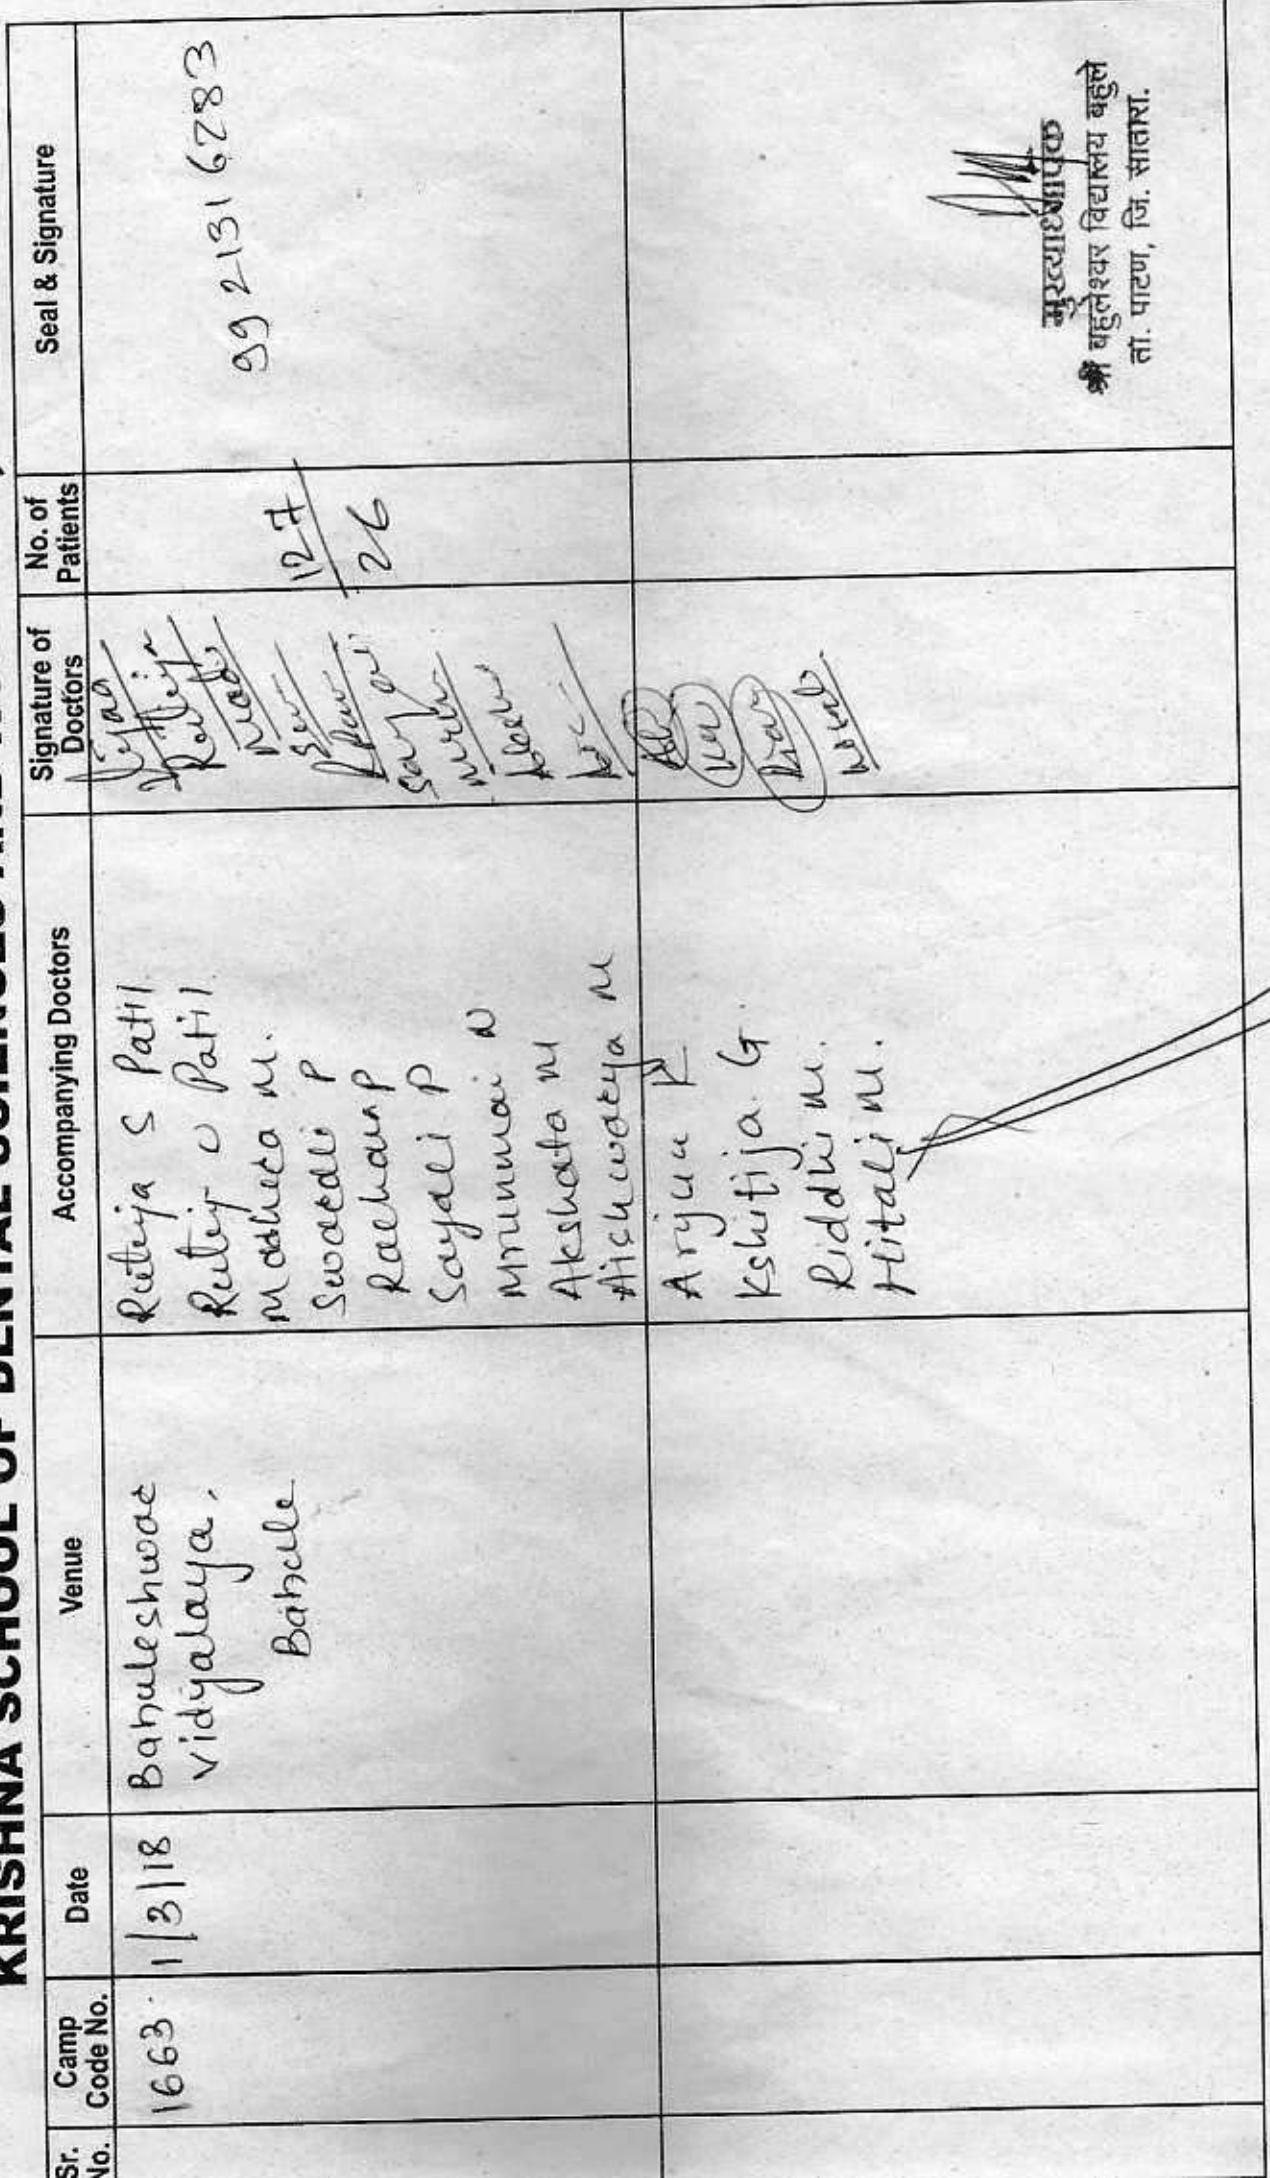 KRISHNA SCHOOL OF DENTAL SCIENCES
Sr. No.
Camp Code No.
Date
Venue
Accompanying Doctors
Signature of Doctors
No. of Patients
Seal & Signature
1663
1/3/18
Bahuleshwar
Vidyalaya,
Bahule
Rutuja S Patil
Patil
Madhura M.
Swardli P
Rachana P
Sayali P
Mrunmai N
Akshata M
Aishwarya M
Arju K
Kshitija G.
Riddhi M.
Hitali M.
Sayali
127
26
9921316283
मुख्याध्यापक
श्री बहुलेश्वर विद्यालय बहुले
ता. पाटण, जि. सातारा.